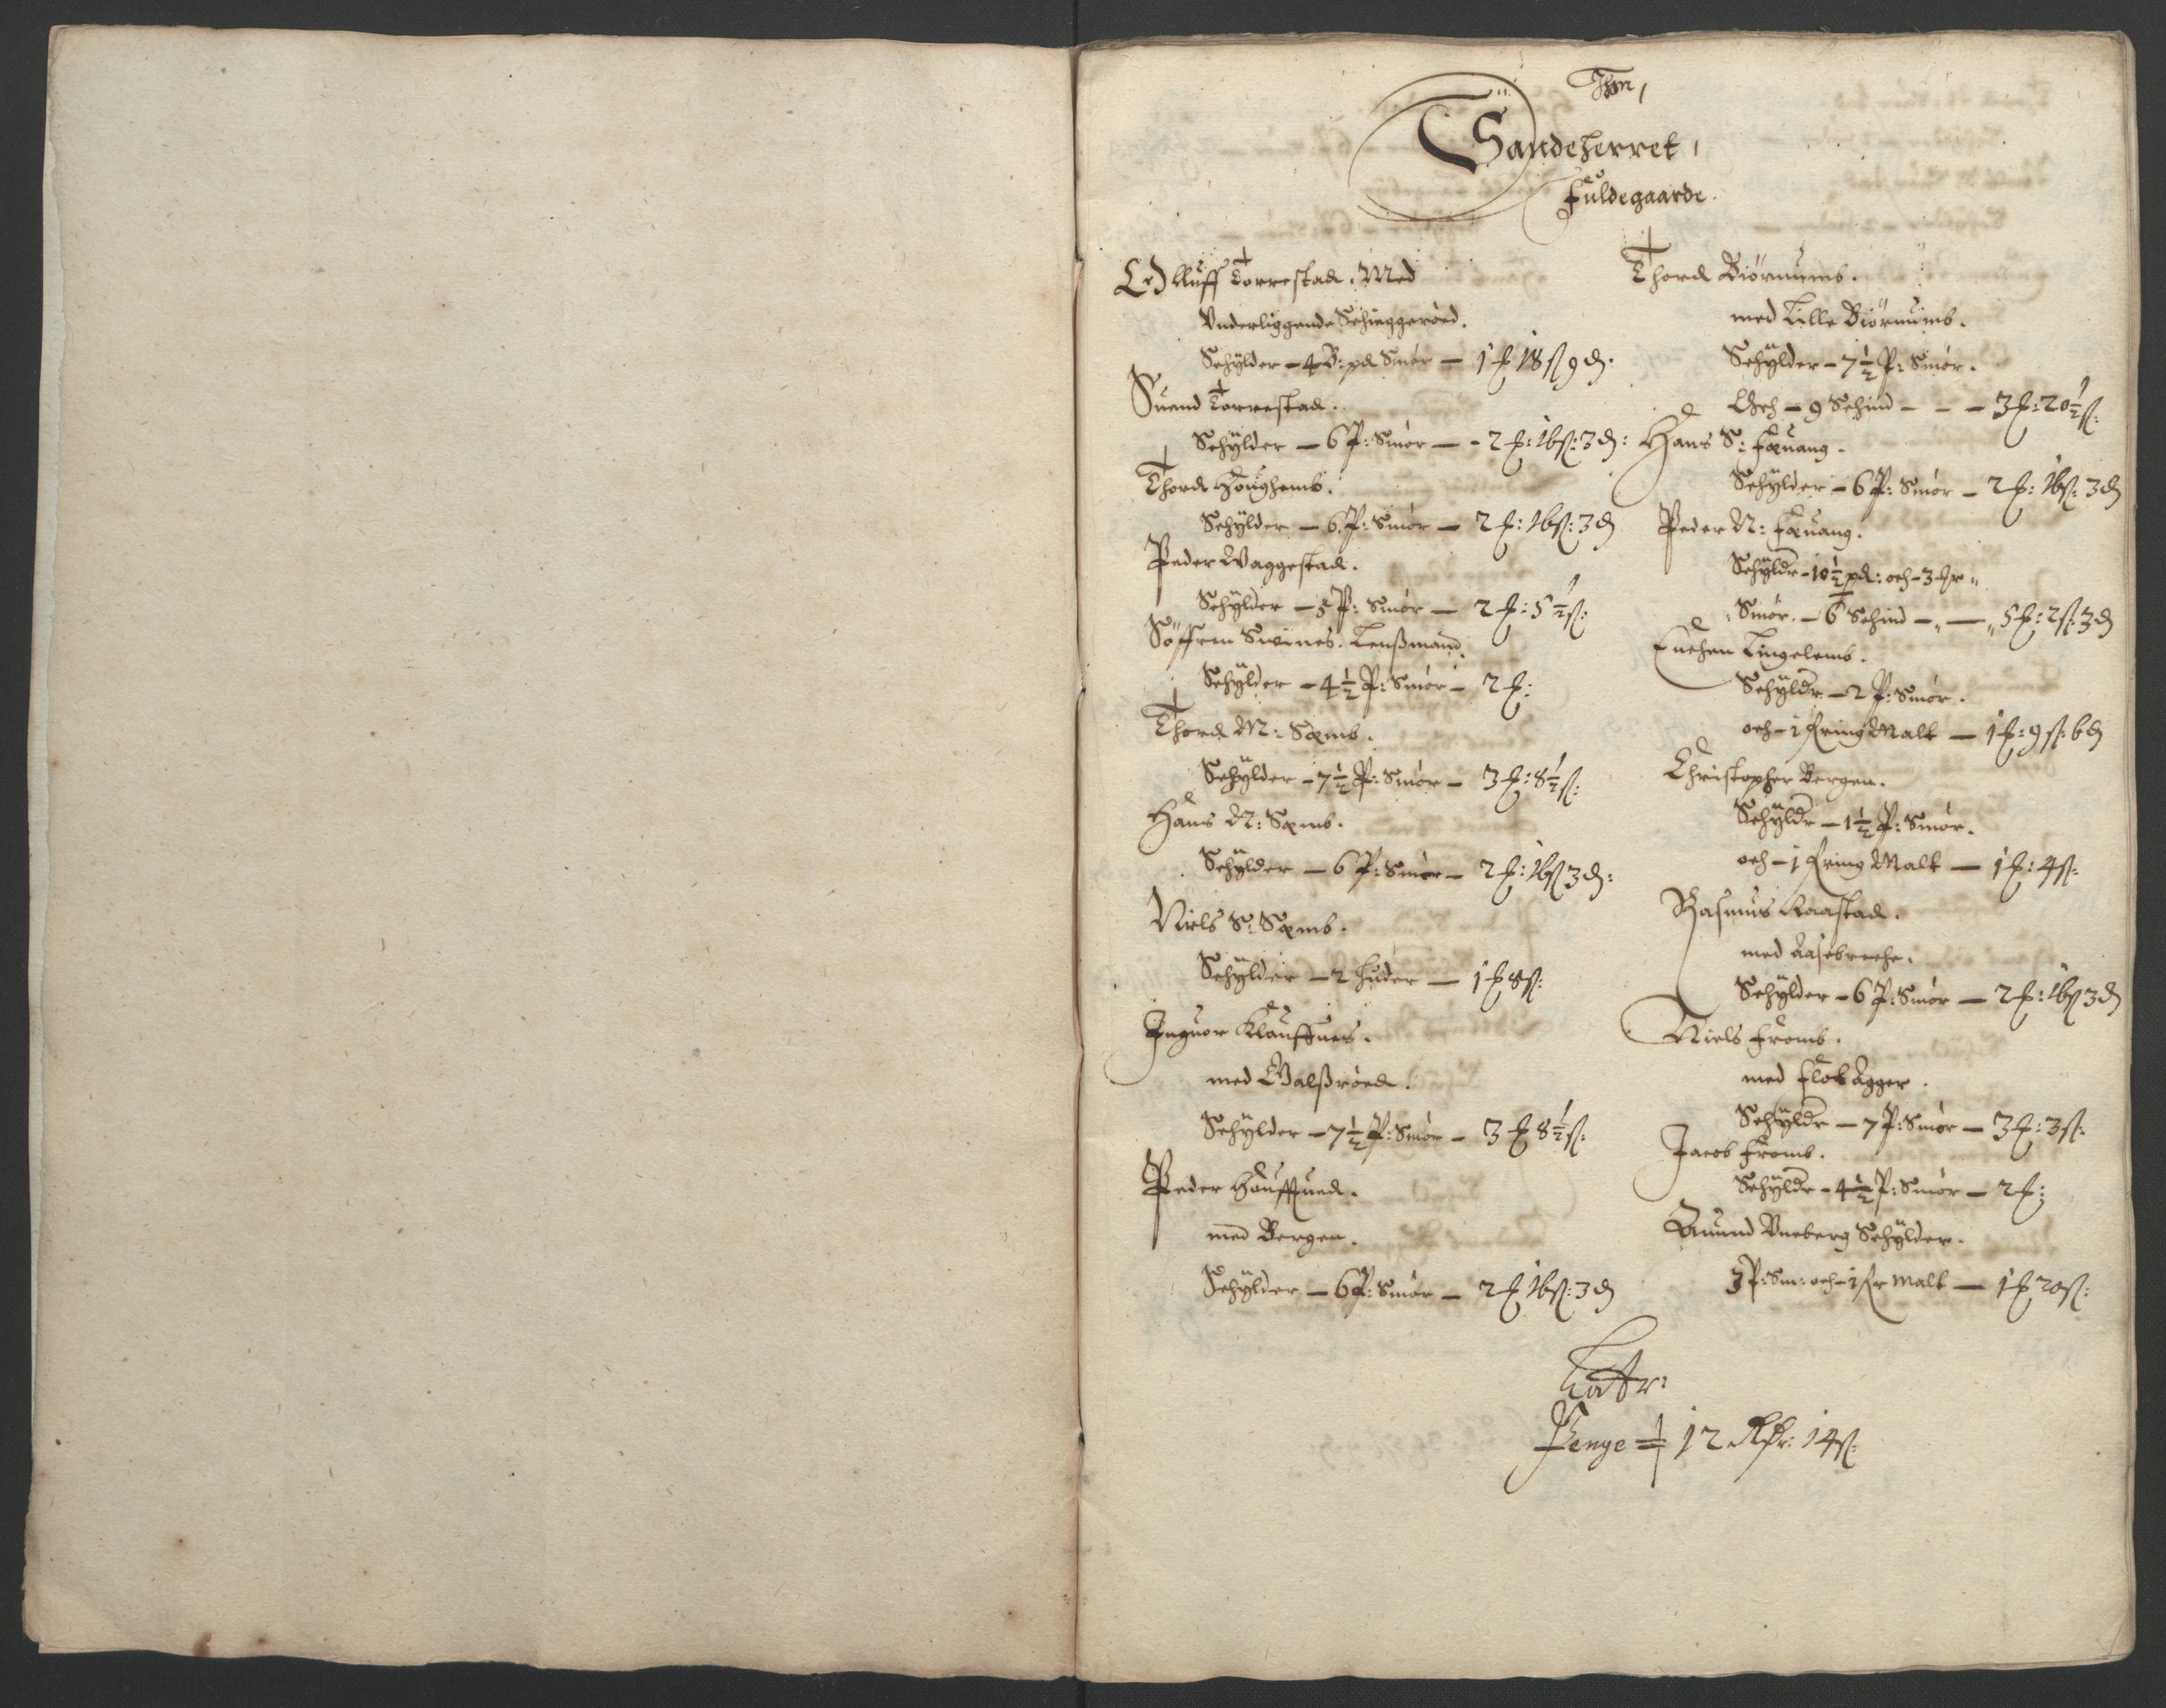 Sandeherret,
Fuldegaarde.
Olluff Torrestad. Med
Underliggende Schieggerøed.
Schÿlder – 4 B: pd Smør – 1 ℔ 18 ß 9 ₰.
Suend Torrestad.
Schÿlder – 6 P: Smør – 2 ℔: 16 ß: 3 ₰:
Thord Houghemb.
Schÿlder – 6 P: Smør – 2 ℔: 16 ß: 3 ₰
Peder Waggestad.
Schÿlder – 5 P: Smør – 2 ℔: 5 ½ ß:
Søffren Swines. Lenßmand.
Schÿlder – 4 ½ P: Smør – 2 ℔:
Thord M: Sæmb.
Schÿlder – 7 ½ P: Smør – 3 ℔: 8 ½ ß:
Hans N: Sæmb.
Schÿlder – 6 P: Smør – 2 ℔: 16 ß 3 ₰:
Niels S: Sæmb.
Schÿlder – 2 huder – 1 ℔ 8 ß:
Inguor Klauffnes.
med Walßrøed.
Schÿlder – 7 ½ P: Smør – 3 ℔ 8 ½ ß:
Peder Hauffued.
med Bergen.
Schÿlder – 6 P: Smør – 2 ℔ 16 ß: 3 ₰
Thord Biørnumb.
med Lille Biørnumb.
Schÿlder – 7 ½ P: Smør.
Och – 9 Schind – – – 3 ℔: 20 ½ ß:
Hans S: Fæuang.
Schÿlder – 6 P: Smør – 2 ℔: 16 ß: 3 ₰
Peder N: Fæuang.
Schÿldr – 10 ½ pd: och – 3 fr
Smør. – 6 Schind – – 5 ℔: 2 ß: 3 ₰
Enchen Lingelemb.
Schÿldr – 2 P: Smør.
och – 1 fring Malt – 1 ℔: 9 ß: 6 ₰
Christopher Bergen.
Schÿldr – 1 ½ P: Smør.
och – 1 fring Malt – 1 ℔: 4 ß:
Rasmus Raastad.
med Aasebreche.
Schÿlder – 6 P: Smør – 2 ℔: 16 ß 3 ₰
Niels Fromb.
med Flot Agger.
Schÿldr – 7 P: Smør – 3 ℔: 3 ß:
Jacob Fromb.
Schÿldr – 4 ½ P: Smør – 2 ℔:
Amund Uneberg Schÿlder.
3 P: Sm: och – 1 fr Malt – 1 ℔ 20 ß:
Latr:
Penge = 12 Rdr: 14 ß: